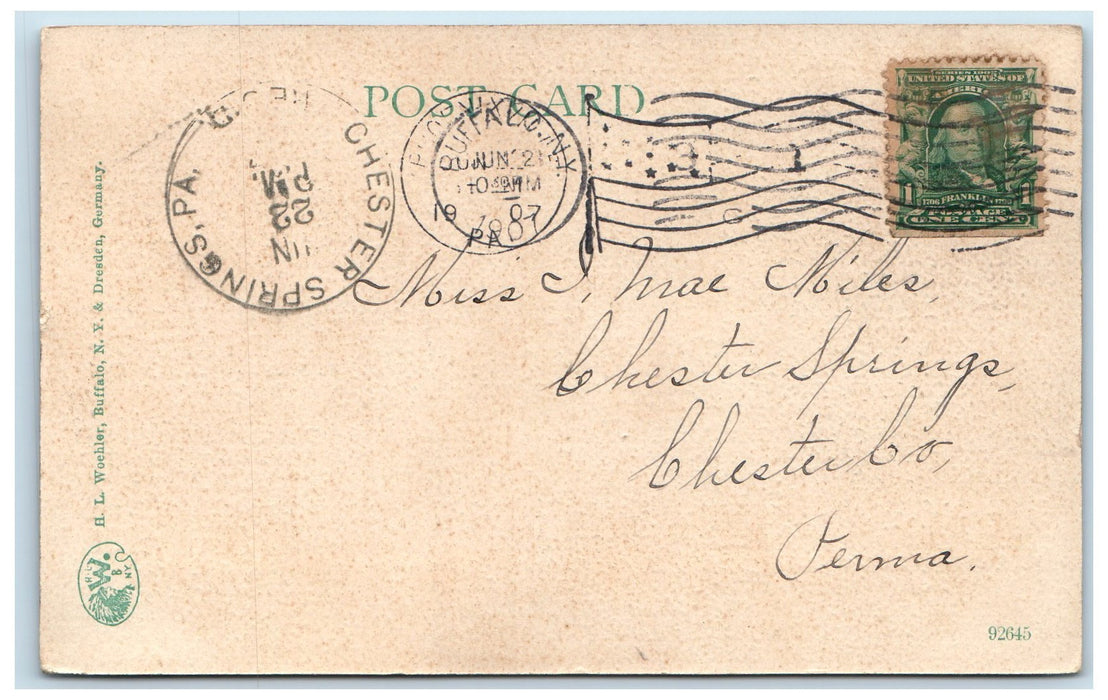 POST CARD
BUFFALO, N.Y.
JUN 21
10
1907
PA
CHESTER SPRINGS, PA.
REC'D
JUN
22
P.M.
SERIES 1902
UNITED STATES OF
AMERICA
1 1
1706 FRANKLIN 1790
POSTAGE
ONE CENT
Miss I. Mae Miles,
Chester Springs,
Chester Co,
Penna.
H. L. Woehler, Buffalo, N. Y. & Dresden, Germany.
H.L.
W.
B
N.Y.
92645